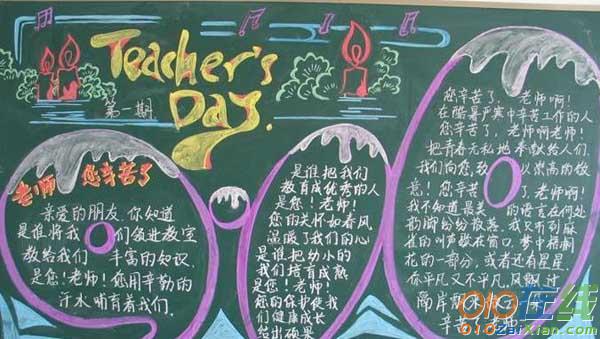 Teacher's
Day.
第一期
老师 您辛苦了
亲爱的朋友.你知道
是谁将我们领进教室
教给我们丰富的知识
是您!老师!您用辛勤的
汗水哺育着我们.
是谁把我们
教育成优秀的人
是您!老师!
您的关怀如春风
温暖了我们的心
是谁把幼小的
我们培育成熟
是您!老师!
您的保护使我
们健康成长
结出硕果
您辛苦了,老师啊!
在酷暑严寒中辛苦工作的人
您辛苦了,老师啊老师!
把青春无私地奉献给人们.
我们向您,致以崇高的敬
意!您辛苦了,老师啊!
我不知道最美的语言在何处
纷纷散落.我只听到麻
雀的叫声歇在窗口.梦中相
花的一部分,或者还有星星.
你平凡又不平凡,风飘过
隔岸
辛苦了老师
010在线
010zaixian.com